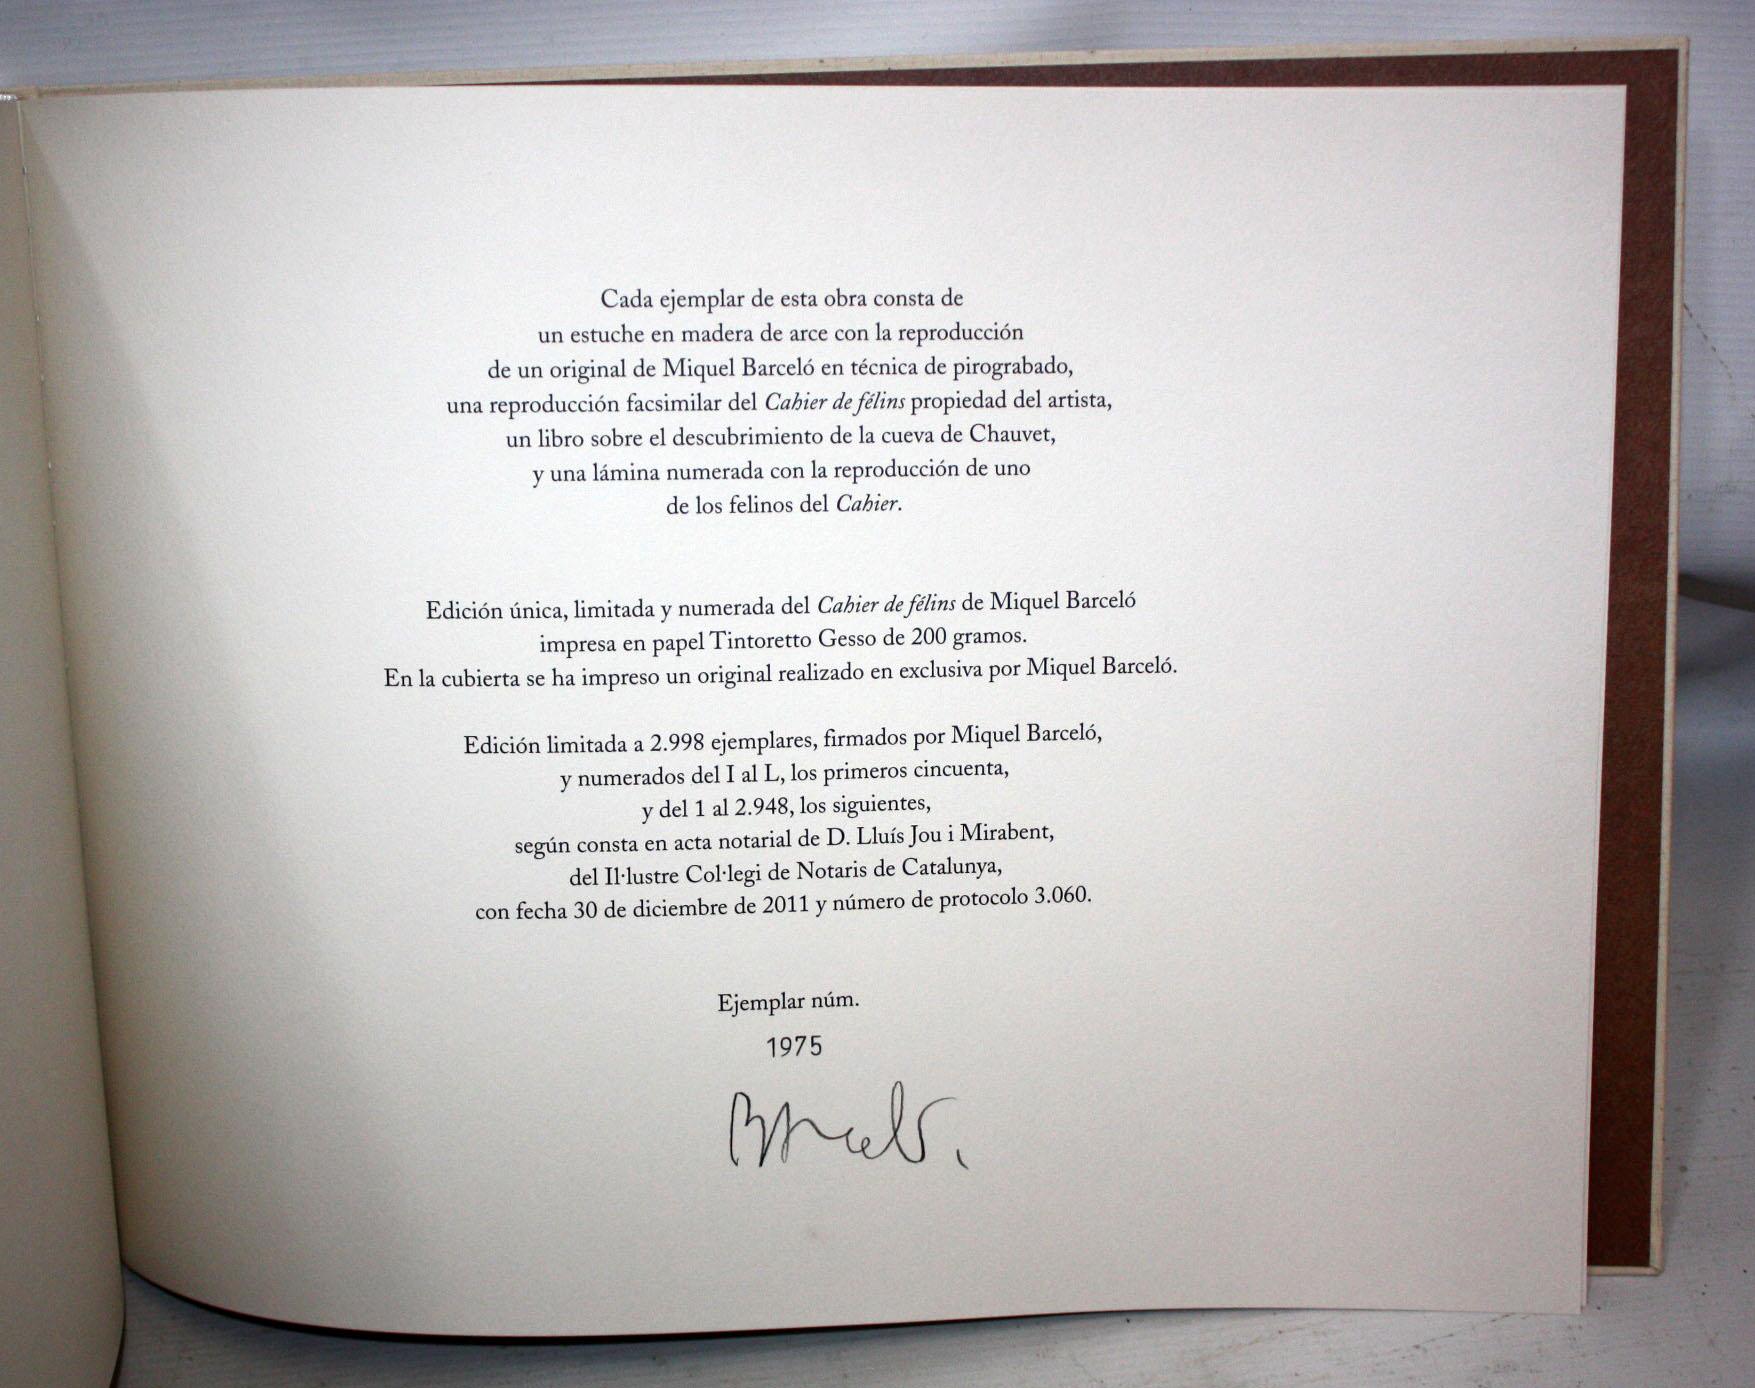 Cada ejemplar de esta obra consta de
un estuche en madera de arce con la reproducción
de un original de Miquel Barceló en técnica de pirograbado,
una reproducción facsimilar del Cahier de félins propiedad del artista,
un libro sobre el descubrimiento de la cueva de Chauvet,
y una lámina numerada con la reproducción de uno
de los felinos del Cahier.
Edición única, limitada y numerada del Cahier de félins de Miquel Barceló
impresa en papel Tintoretto Gesso de 200 gramos.
En la cubierta se ha impreso un original realizado en exclusiva por Miquel Barceló.
Edición limitada a 2.998 ejemplares, firmados por Miquel Barceló,
y numerados del I al L, los primeros cincuenta,
y del 1 al 2.948, los siguientes,
según consta en acta notarial de D. Lluís Jou i Mirabent,
del Il·lustre Col·legi de Notaris de Catalunya,
con fecha 30 de diciembre de 2011 y número de protocolo 3.060.
Ejemplar núm.
1975
Barceló.